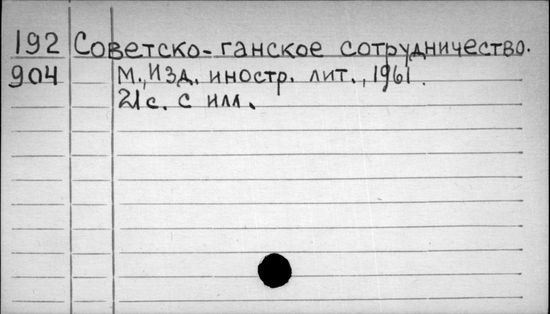 192 Советско-ганское сотрудничество.
904 М., Изд. иностр. лит., 1961.
21 с. с илл.